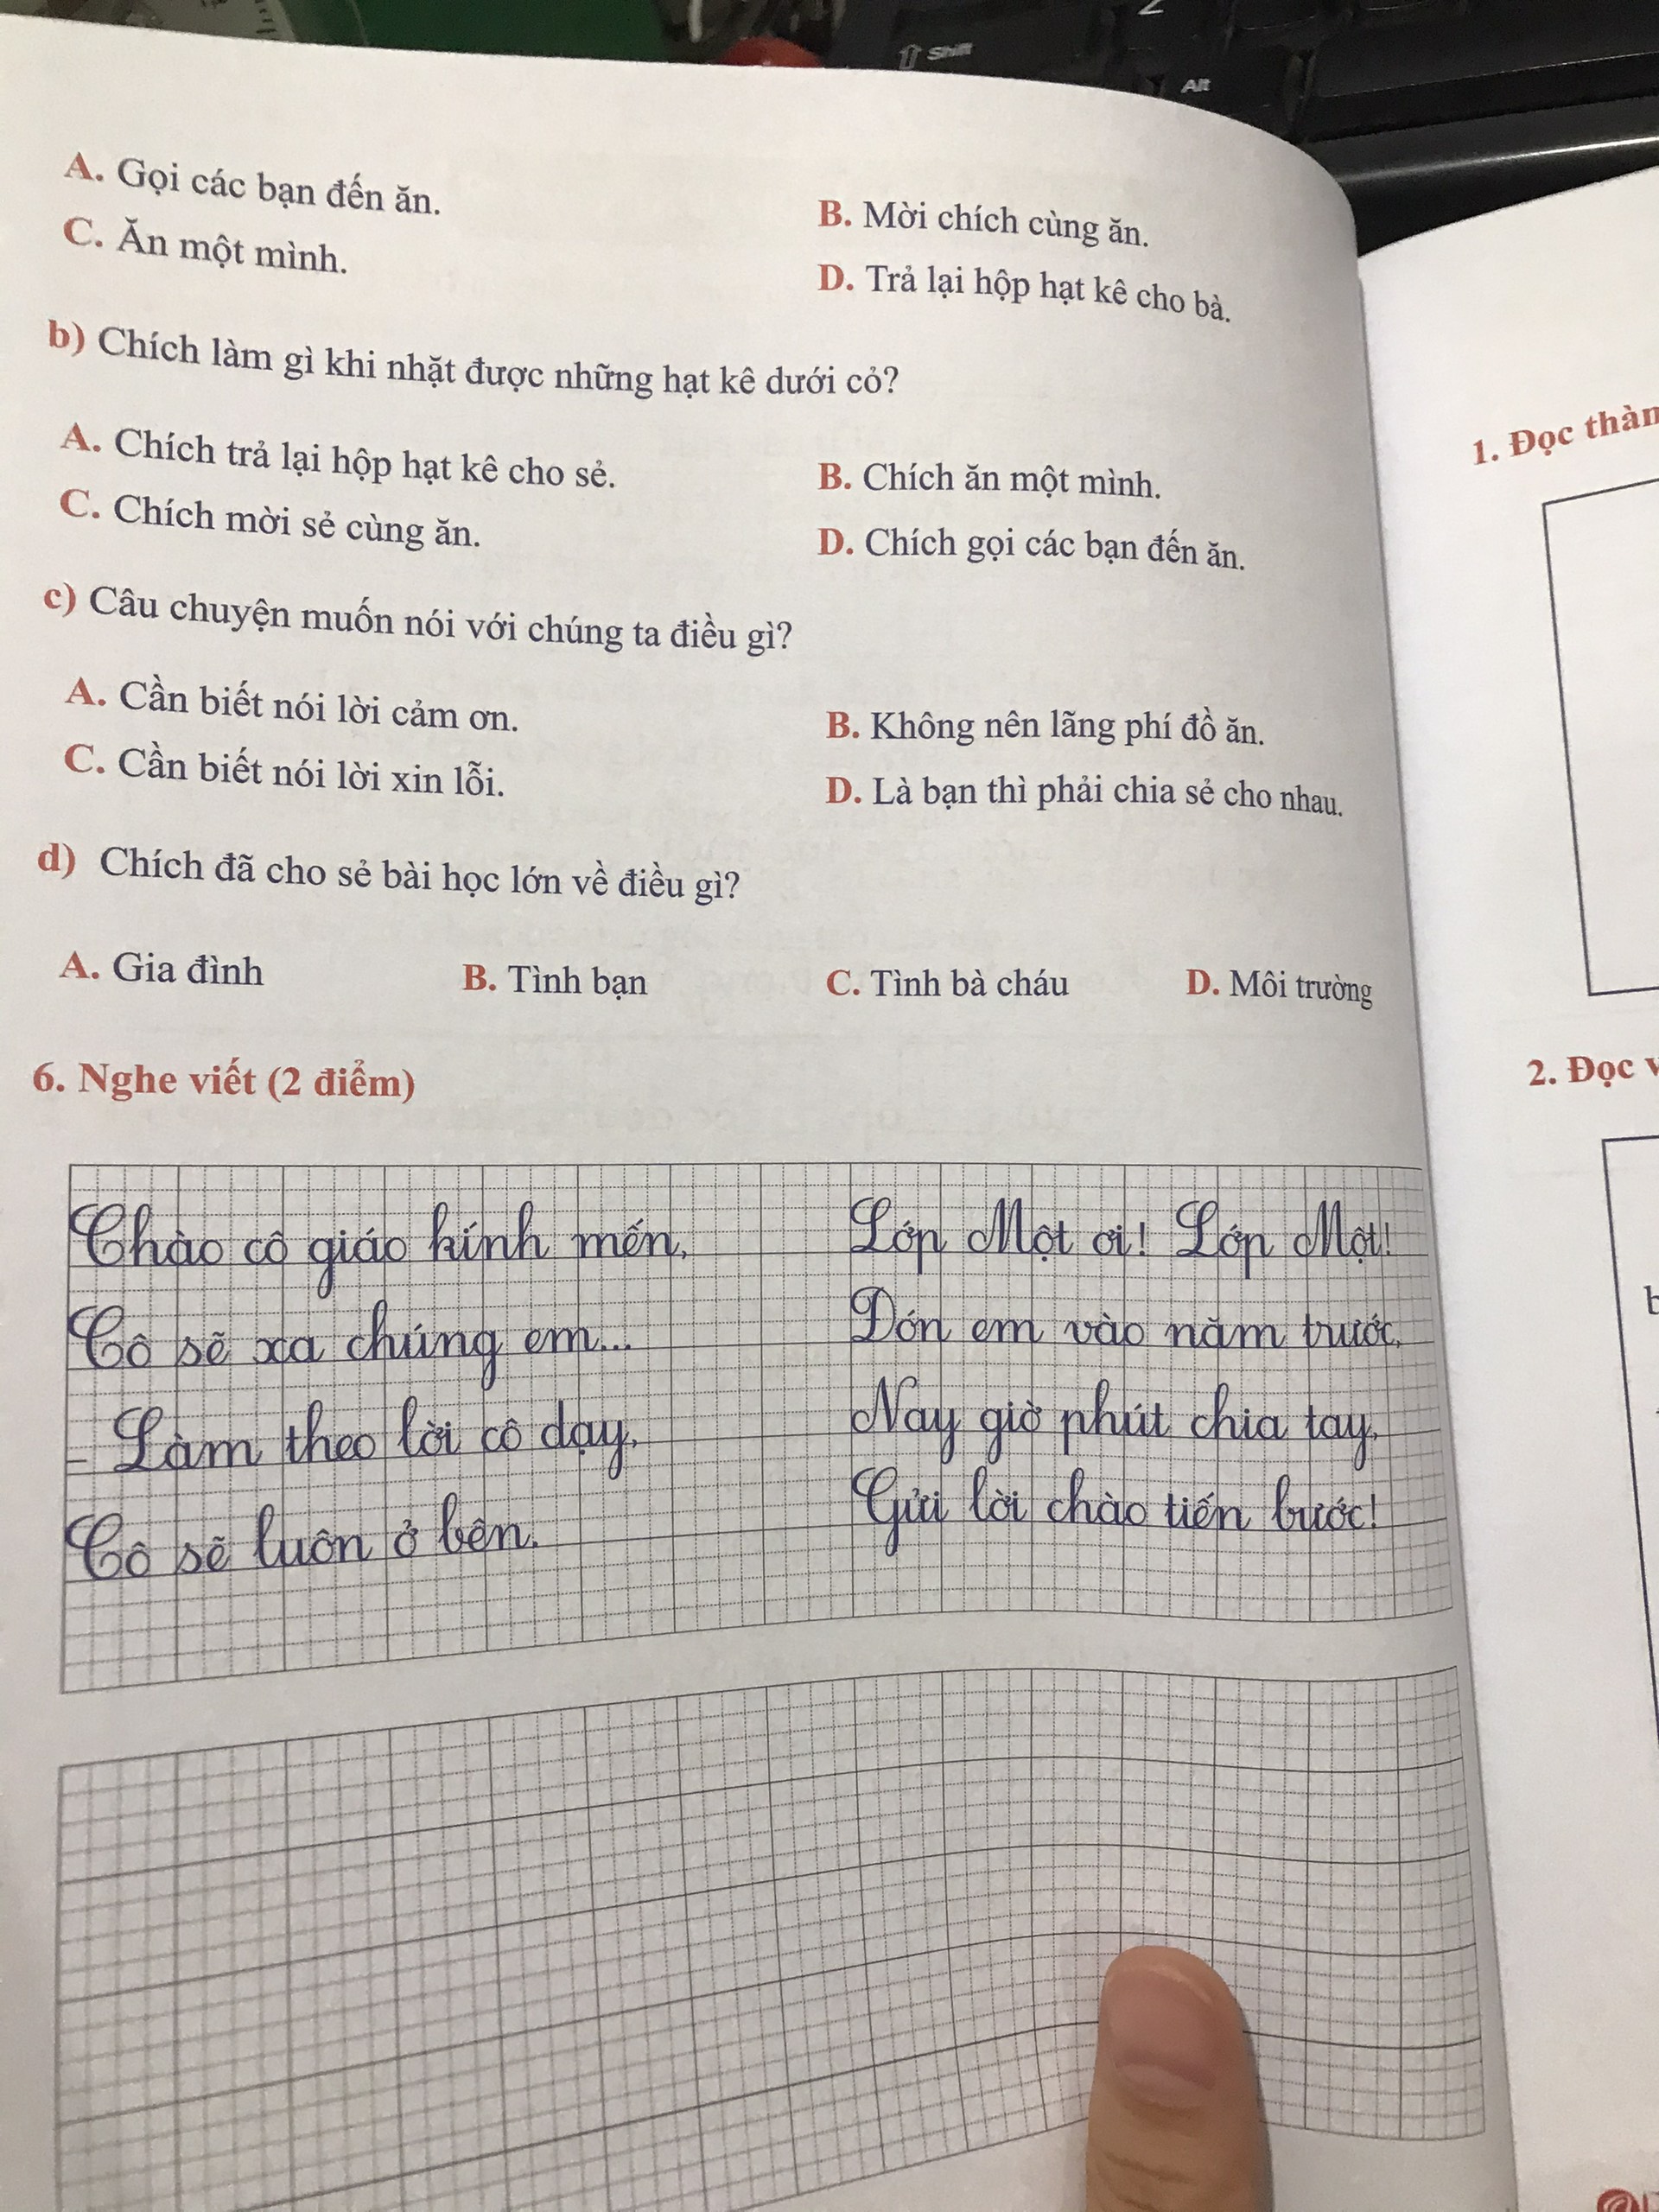 Shift
Alt
A. Gọi các bạn đến ăn.
B. Mời chích cùng ăn.
C. Ăn một mình.
D. Trả lại hộp hạt kê cho bà.
b) Chích làm gì khi nhặt được những hạt kê dưới cỏ?
A. Chích trả lại hộp hạt kê cho sẻ.
B. Chích ăn một mình.
C. Chích mời sẻ cùng ăn.
D. Chích gọi các bạn đến ăn.
c) Câu chuyện muốn nói với chúng ta điều gì?
A. Cần biết nói lời cảm ơn.
B. Không nên lãng phí đồ ăn.
C. Cần biết nói lời xin lỗi.
D. Là bạn thì phải chia sẻ cho nhau.
d) Chích đã cho sẻ bài học lớn về điều gì?
A. Gia đình
B. Tình bạn
C. Tình bà cháu
D. Môi trường
6. Nghe viết (2 điểm)
Chào cô giáo kính mến,
Cô sẽ xa chúng em...
- Làm theo lời cô dạy,
Cô sẽ luôn ở bên.
Lớp Một ơi! Lớp Một!
Đón em vào năm trước,
Nay giờ phút chia tay,
Gửi lời chào tiến bước!
1. Đọc thàn
2. Đọc v